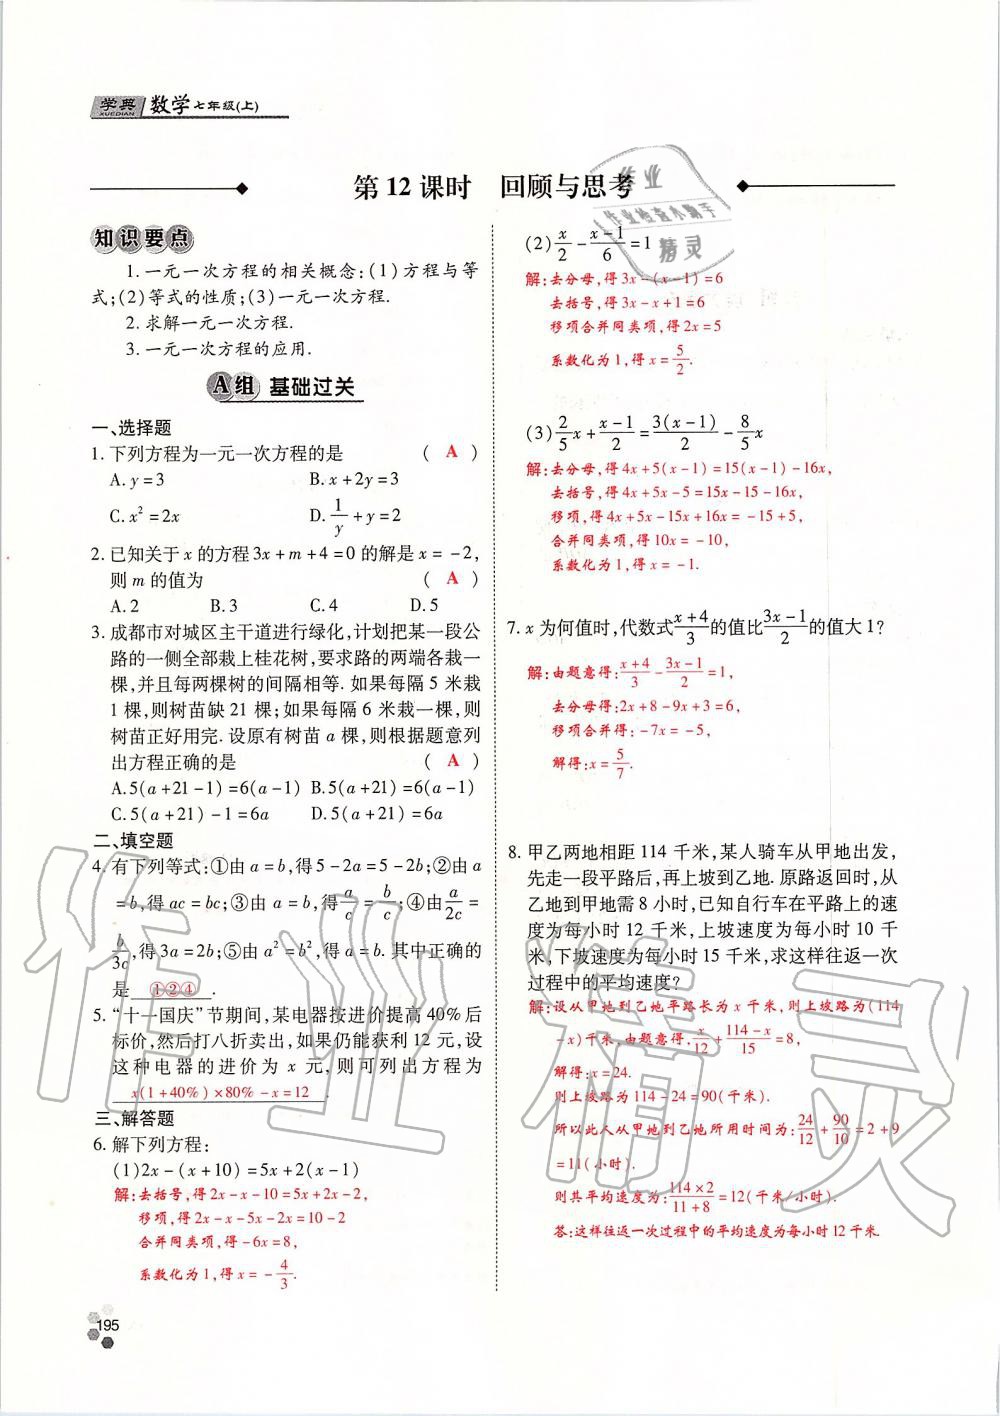 学典 数学七年级(上)
XUEDIAN
第12课时 回顾与思考
知识要点
1.一元一次方程的相关概念:(1)方程与等
式;(2)等式的性质;(3)一元一次方程.
2.求解一元一次方程.
3.一元一次方程的应用.
A组 基础过关
一、选择题
1.下列方程为一元一次方程的是 ( A )
A.y=3 B.x+2y=3
C.x²=2x D.1/y+y=2
2.已知关于x的方程3x+m+4=0的解是x=-2,
则m的值为 ( A )
A.2 B.3 C.4 D.5
3.成都市对城区主干道进行绿化,计划把某一段公
路的一侧全部栽上桂花树,要求路的两端各栽一
棵,并且每两棵树的间隔相等.如果每隔5米栽
1棵,则树苗缺21棵;如果每隔6米栽一棵,则
树苗正好用完.设原有树苗a棵,则根据题意列
出方程正确的是 ( A )
A.5(a+21-1)=6(a-1) B.5(a+21)=6(a-1)
C.5(a+21)-1=6a D.5(a+21)=6a
二、填空题
4.有下列等式:①由a=b,得5-2a=5-2b;②由a
=b,得ac=bc;③由a=b,得a/c=b/c;④由a/2c=
b/3c,得3a=2b;⑤由a²=b²,得a=b.其中正确的
是 ①②④ .
5.“十一国庆”节期间,某电器按进价提高40%后
标价,然后打八折卖出,如果仍能获利12元,设
这种电器的进价为x元,则可列出方程为
x(1+40%)×80%-x=12 .
三、解答题
6.解下列方程:
(1)2x-(x+10)=5x+2(x-1)
解:去括号,得2x-x-10=5x+2x-2,
移项,得2x-x-5x-2x=10-2
合并同类项,得-6x=8,
系数化为1,得x=-4/3.
195
(2)x/2-(x-1)/6=1
解:去分母,得3x-(x-1)=6
去括号,得3x-x+1=6
移项合并同类项,得2x=5
系数化为1,得x=5/2.
(3)2/5x+(x-1)/2=3(x-1)/2-8/5x
解:去分母,得4x+5(x-1)=15(x-1)-16x,
去括号,得4x+5x-5=15x-15-16x,
移项,得4x+5x-15x+16x=-15+5,
合并同类项,得10x=-10,
系数化为1,得x=-1.
7.x为何值时,代数式(x+4)/3的值比(3x-1)/2的值大1?
解:由题意得:(x+4)/3-(3x-1)/2=1,
去分母得:2x+8-9x+3=6,
移项合并得:-7x=-5,
解得:x=5/7.
8.甲乙两地相距114千米,某人骑车从甲地出发,
先走一段平路后,再上坡到乙地.原路返回时,从
乙地到甲地需8小时,已知自行车在平路上的速
度为每小时12千米,上坡速度为每小时10千
米,下坡速度为每小时15千米,求这样往返一次
过程中的平均速度?
解:设从甲地到乙地平路长为x千米,则上坡路为(114
-x)千米,由题意得,x/12+(114-x)/15=8,
解得:x=24.
则上坡路为114-24=90(千米).
所以此人从甲地到乙地所用时间为:24/12+90/10=2+9
=11(小时).
则其平均速度为:(114×2)/(11+8)=12(千米/小时).
答:这样往返一次过程中的平均速度为每小时12千米.
作业
作业检查小助手
精灵
作业精灵